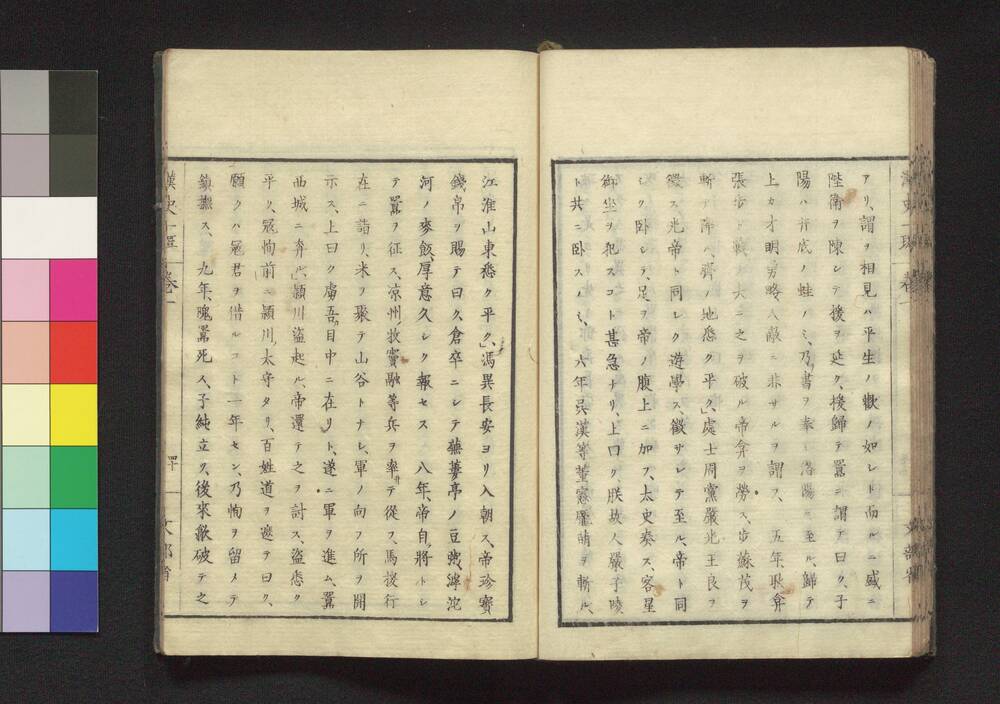 アリ、謂ヲ相見ハ平生ノ歓ノ如シト而ルニ盛ニ
陛衛ヲ陳シテ後ヲ延ク、援歸テ囂ニ謂テ曰ク、子
陽ハ井底ノ蛙ノミ、乃書ヲ奉シ洛陽ニ至ル、歸テ
上カ才明勇略人敵ニ非サルヲ謂フ、五年耿弇
張歩ト戰ヒ大ニ之ヲ破ル帝弇ヲ勞ス、歩蘇茂ヲ
斬テ降ル、齊ノ地悉ク平ク、處士周黨嚴光王良ヲ
徴ス光帝ト同シク遊學ス、徴サレテ至ル、帝ト同
シク卧シテ、足ヲ帝ノ腹上ニ加フ、太史奏ス、客星
御坐ヲ犯スコト甚急ナリ、上曰ク朕故人嚴子陵
ト共ニ卧スノミ、六年呉漢等董憲龐萌ヲ斬ル、
江淮山東悉ク平ク、馮異長安ヨリ入朝ス、帝珍寶
錢帛ヲ賜テ曰ク、倉卒ニシテ蕪蔞亭ノ豆粥、滹沱
河ノ麥飯、厚意久シク報セス 八年、帝自將トシ
テ囂ヲ征ス、涼州ノ牧竇融等兵ヲ率テ從フ、馬援行
在ニ詣リ、米ヲ聚テ山谷トナシ、軍ノ向フ所ヲ開
示ス、上曰ク虜吾目中ニ在リト、遂ニ軍ヲ進ム、囂
西城ニ奔ル、潁川盗起ル、帝還テ之ヲ討ス、盗悉ク
平ク、寇恂前ニ潁川ノ太守タリ、百姓道ヲ遮テ曰ク、
願クハ寇君ヲ借ルコト一年セン、乃恂ヲ留メテ
鎮撫ス、 九年、隗囂死ス、子純立ツ、後來歙破テ之
漢史一班 卷一
四十
文部省